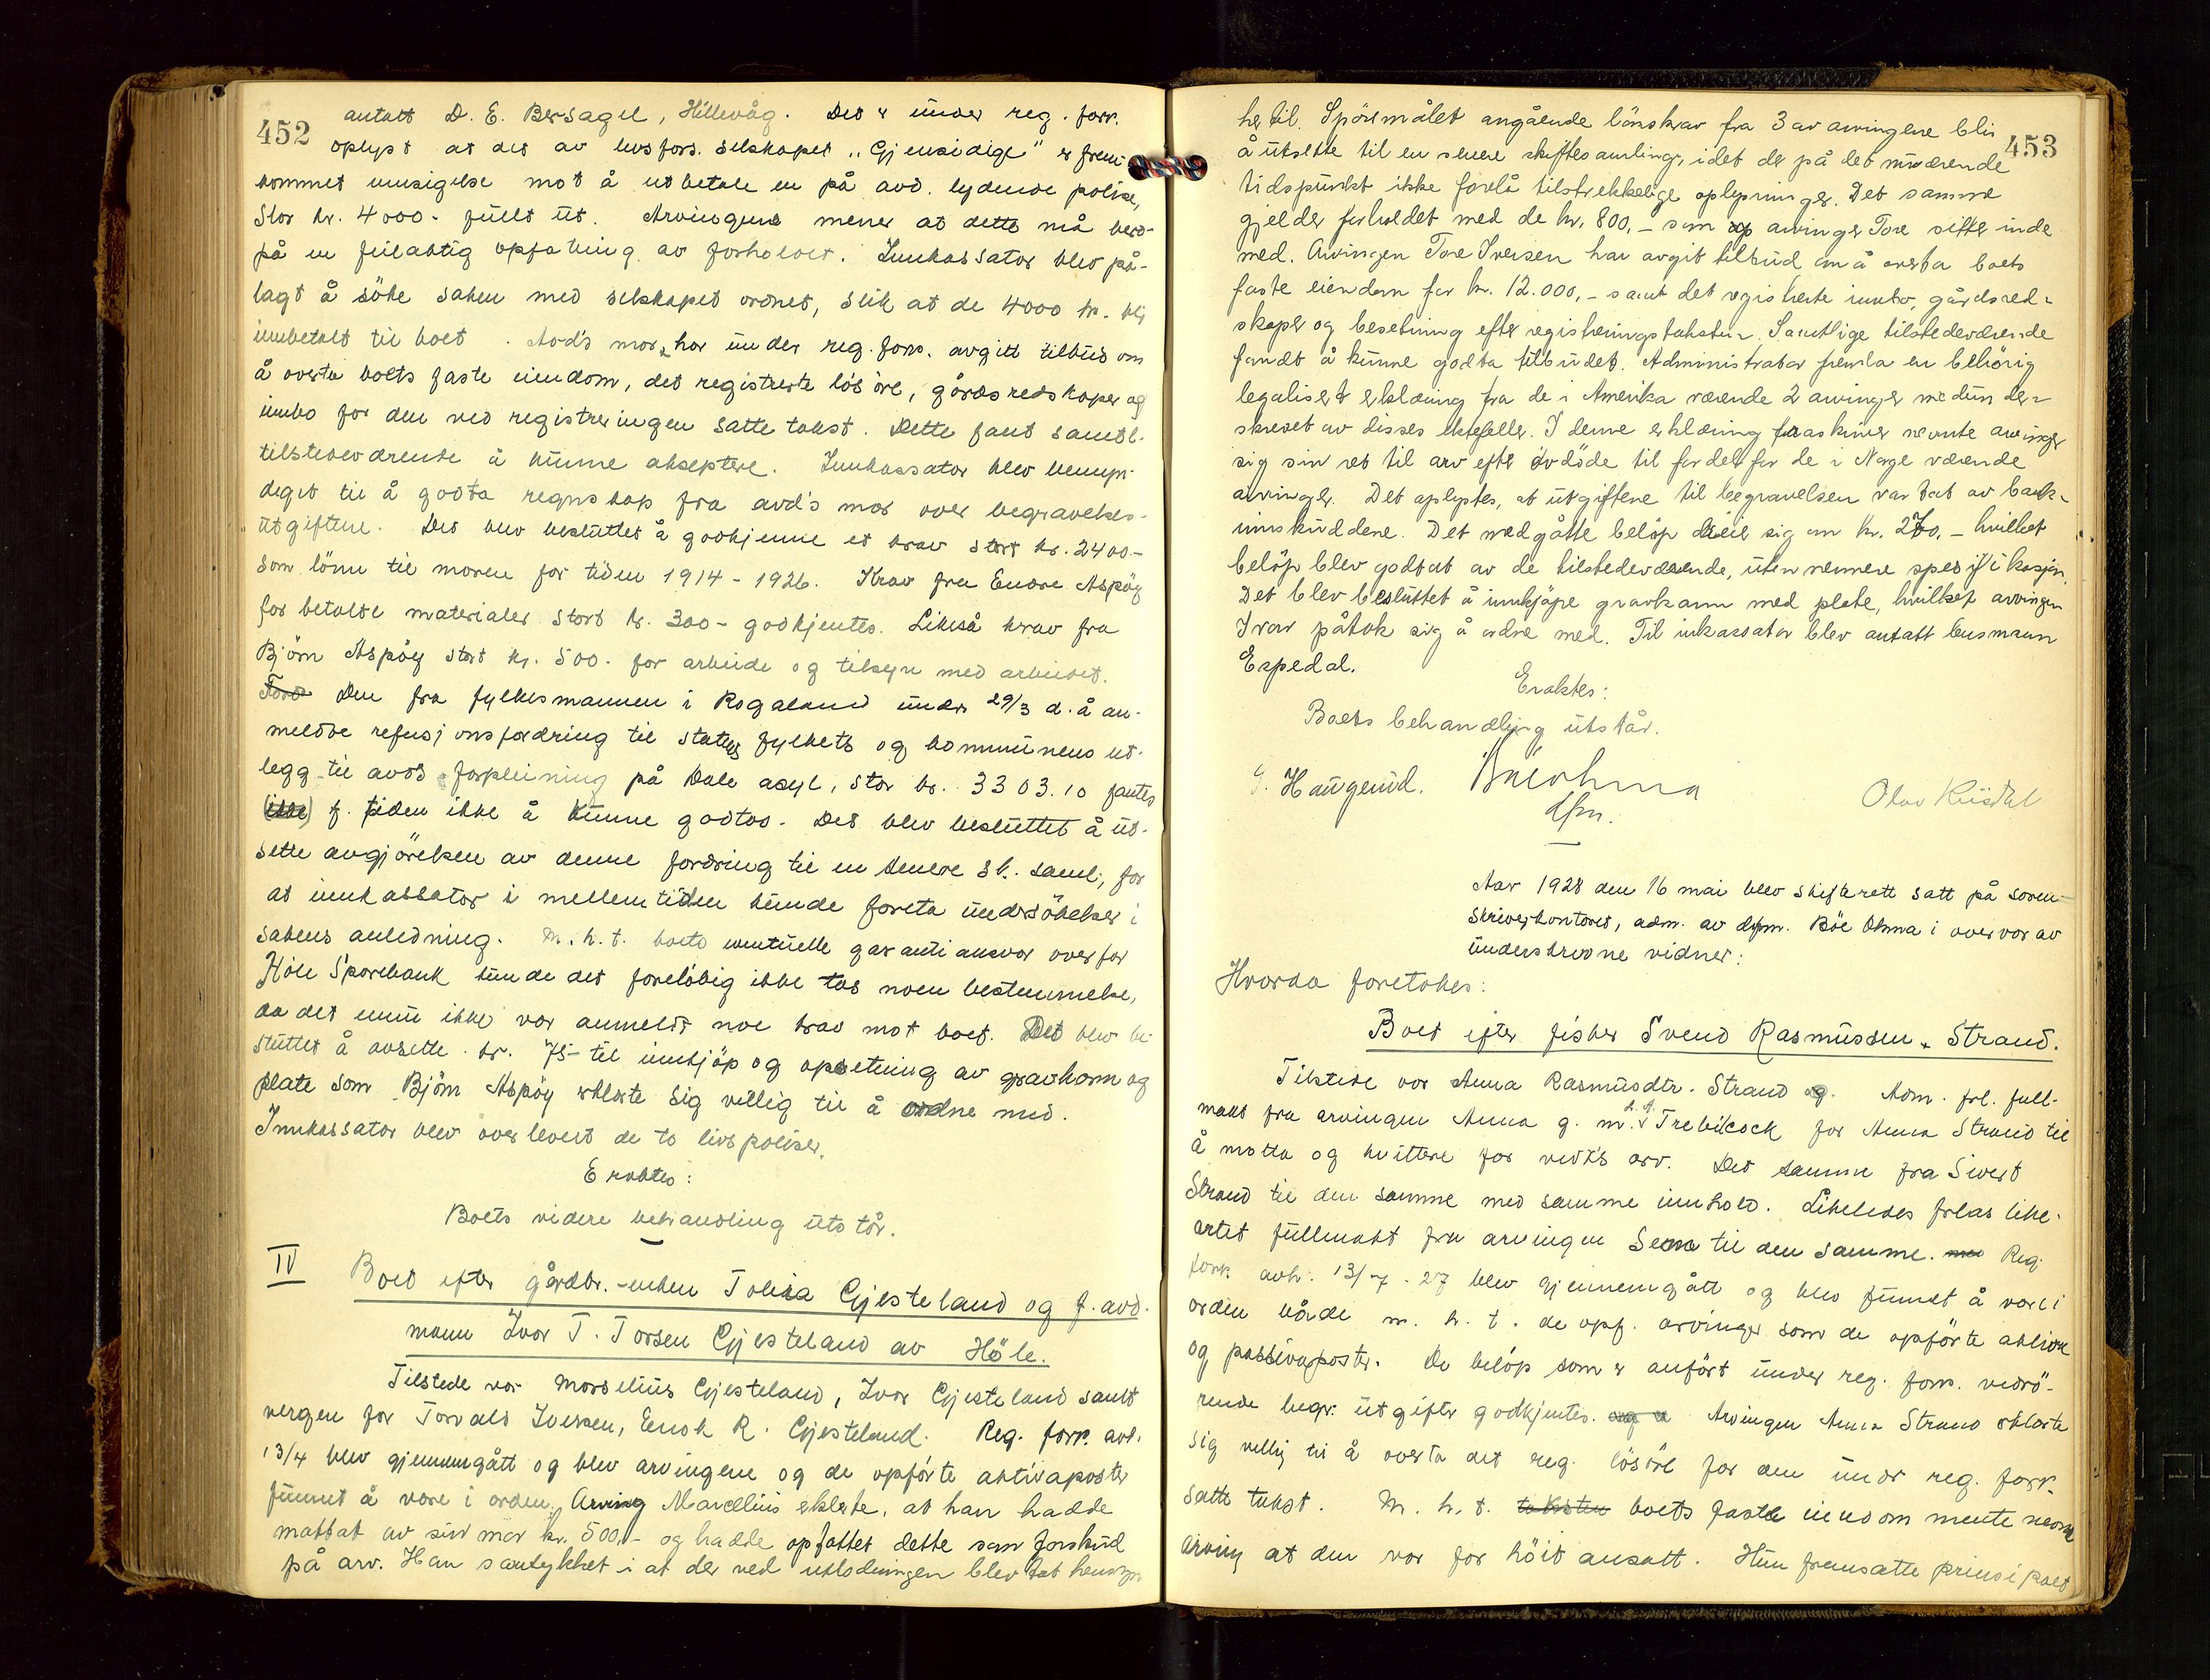 452
antatt D. E. Bersagel, Hillevåg. Det er under reg. forr.
oplyst at det av livsfors. selskapet "Gjensidige" er frem-
kommet innsigelse mot å utbetale en på avd. lydende polise,
stor kr. 4000- fullt ut. Arvingene mener at dette må bero
på en feilaktig opfatning av forholdet. Innkassator blev på-
lagt å söke saken med selskapet ordnet, slik at de 4000 kr. blir
innbetalt til boet. Avd's mor har under reg. forr. avgitt tilbud om
å overta boets faste eiendom, det registrerte lösöre, gårdsredskaper og
innbo for den ved registreringen satte takst. Dette fant samtl.
tilstedeværende å kunne akseptere. Innkassator blev bemyn-
diget til å godta regnskap fra avd's mor over begravelses-
utgiftene. Det blev besluttet å godkjenne et krav stort kr. 2400-
som lönn til moren for tiden 1914 - 1926. Krav fra Endre Aspöy
for betalte materialer stort kr. 300- godkjentes. Likeså krav fra
Björn Aspöy stort kr. 500. for arbeide og tilsyn med arbeidet.
Den fra fylkesmannen i Rogaland under 29/3 d. å an-
meldte refusjonsfordring til statens fylkets og kommunens ut-
legg til avds forpleining på Dale asyl, stor kr. 3303.10 fantes
(ikke) f. tiden ikke å kunne godtas. Det blev besluttet å ut-
sette avgjörelsen av denne fordring til en senere sk. saml., for
at innkassator i mellemtiden kunde foreta undersökelser i
sakens anledning. M.h.t. boets eventuelle garantiansvar overfor
Höle Sparebank kunde det forelöbig ikke tas noen bestemmelse,
da det ennu ikke var anmeldt noe krav mot boet. Det blev be-
sluttet å avsette kr. 75- til innkjöp og opsetning av gravkarm og
plate som Björn Aspöy erklærte sig villig til å ordne med.
Innkassator blev overlevert de to livspoliser.
Eraktes:
Boets videre behandling utstår.
IV Boet efter gårdbr.-enken Tolina Gjesteland og f. avd.
mann Ivar T. Torsen Gjesteland av Höle.
Tilstede var Marselius Gjesteland, Ivar Gjesteland samt
vergen for Torvald Iversen, Enok R. Gjesteland. Reg. forr. avh.
13/4 blev gjennemgått og blev arvingene og de opförte aktivaposter
funnet å være i orden. Arving Marcellius erklærte, at han hadde
mottat av sin mor kr. 500,- og hadde opfattet dette som forskud
på arv. Han samtykket i at der ved utlodningen blev tat hensyn
453
hertil. Spörsmålet angående lönskrav fra 3 av arvingene blir
å utsette til en senere skiftesamling, idet der på det nuværende
tidspunkt ikke forelå tilstrekkelige oplysninger. Det samme
gjelder forholdet med de kr. 800,- som arvinger Tore sitter inde
med. Arvingen Tore Iversen har avgit tilbud om å overta boets
faste eiendom for kr. 12.000,- samt det registrerte innbo, gårdsred-
skaper og besetning efter registreringstaksten. Samtlige tilstedeværende
fandt å kunne godta tilbudet. Administrator fremla en behörig
legalisert erklæring fra de i Amerika værende 2 arvinger medunder-
skrevet av disses ektefeller. I denne erklæring fraskriver nevnte arvinger
sig sin ret til arv efter avdöde til fordel for de i Norge værende
arvinger. Det oplystes, at utgiftene til begravelsen var tat av bank-
innskuddene. Det medgåtte belöp dreiet sig om kr. 270,- hvilket
belöp blev godtat av de tilstedeværende, uten nermere spesifikasjon.
Det blev besluttet å innkjöpe gravkarm med plate, hvilket arvingen
Ivar påtok sig å ordne med. Til inkassator blev antatt lensmann
Espedal.
Eraktes:
Boets behandling utstår.
G. Haugerud. Böe Ohma Olav Riisdal
dfm.
Aar 1928 den 16 mai blev skifterett satt på soren-
skriverkontoret, adm. av dfm. Böe Ohma i overvær av
underskrevne vidner:
Hvorda foretokes:
Boet efter fisker Svend Rasmussen Strand.
Tilstede var Anna Rasmusdtr. Strand og. Adm. frl. full-
makt fra arvingen Anna g. m. Trebilcock for Anna Strand til
å motta og kvittere for vedk's arv. Det samme fra Sivert
Strand til den samme med samme innhold. Likeledes frlas like-
artet fullmakt fra arvingen Sem til den samme. Reg.
forr. avh. 13/7-27 blev gjennemgått og blev funnet å være i
orden både m. h. t. de opf. arvinger som de opförte aktiva
og passivaposter. De belöp som er anfört under reg. forr. vedrö-
rende begr. utgifter godkjentes. Arvingen Anna Strand erklærte
sig villig til å overta det reg. lösöre for den under reg. forr.
satte takst. M. h. t. taksten boets faste eiendom mente nevnte
arving at den var for höit ansatt. Hun fremsatte prinsipalt